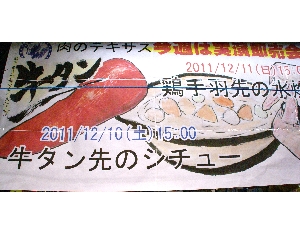 肉のテキサス
牛タン
2011/12/11(日)15
鶏手羽先の水炊
2011/12/10(土)15:00
牛タン先のシチュー